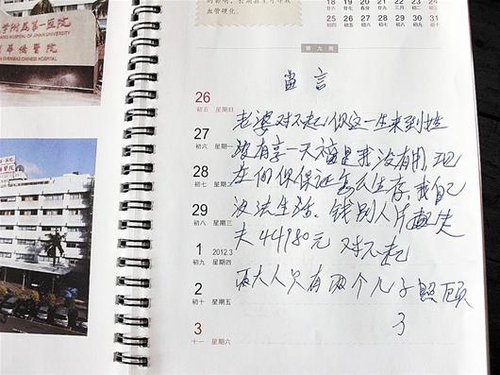 学附属第一医院
華僑医院
OVERSEAS CHINESE HOSPITAL
血管硬化。
18 19 20 21 22 23 24
25 26 27 28 29 30 31
第九周
留言
26 初五 星期日
老婆对不起你这一生来到
27 初六 星期一
没有享一天福是我没有用,现
28 初七 星期二
在何保保证怎么生存,我自己
29 初八 星期三
没法生活。钱别人骗
1 2012.3 初九 星期四
夫44980元 对不起
2 初十 星期五
两大人只有两个儿子照顾
3 十一 星期六
了